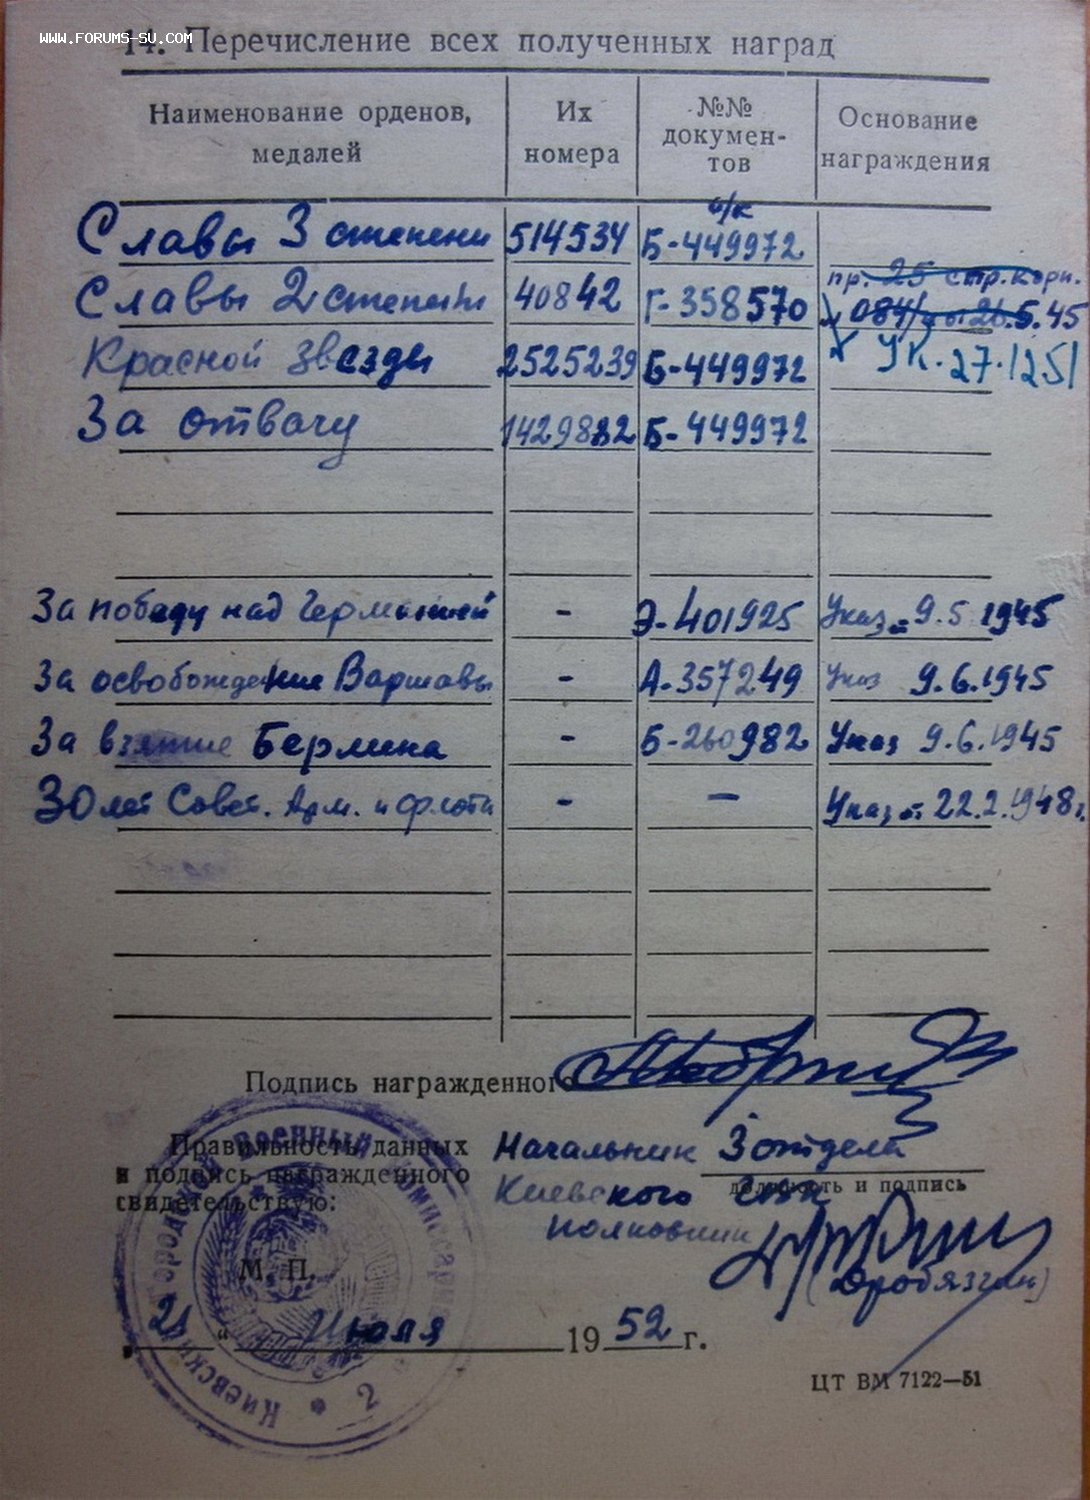 www.forums-su.com
14. Перечисление всех полученных наград
Наименование орденов, медалей
Их номера
№№ документов
Основание награждения
о/к
Славы 3 степени 514534 Б-449972
пр. 25 стр. корп.
Славы 2 степени 40842 Г-358570 26.5.45
Красной звезды 2525239 Б-449972 УК. 27.12.51
За отвагу 1429882 Б-449972
За победу над Германией - Э-401925 Указ от 9.5.1945
За освобождение Варшавы - А-357249 Указ 9.6.1945
За взятие Берлина - Б-260982 Указ 9.6.1945
30 лет Совет. Арм. и флота - - Указ от 22.2.1948 г.
Подпись награжденного
Правильность данных
и подпись награжденного
свидетельствую:
Начальник 3 отдела
должность и подпись
Киевского ГВК
полковник
(Дробязгин)
М. П.
Киевский городской военный комиссариат
2
"21" Июля 1952 г.
ЦТ ВМ 7122—51